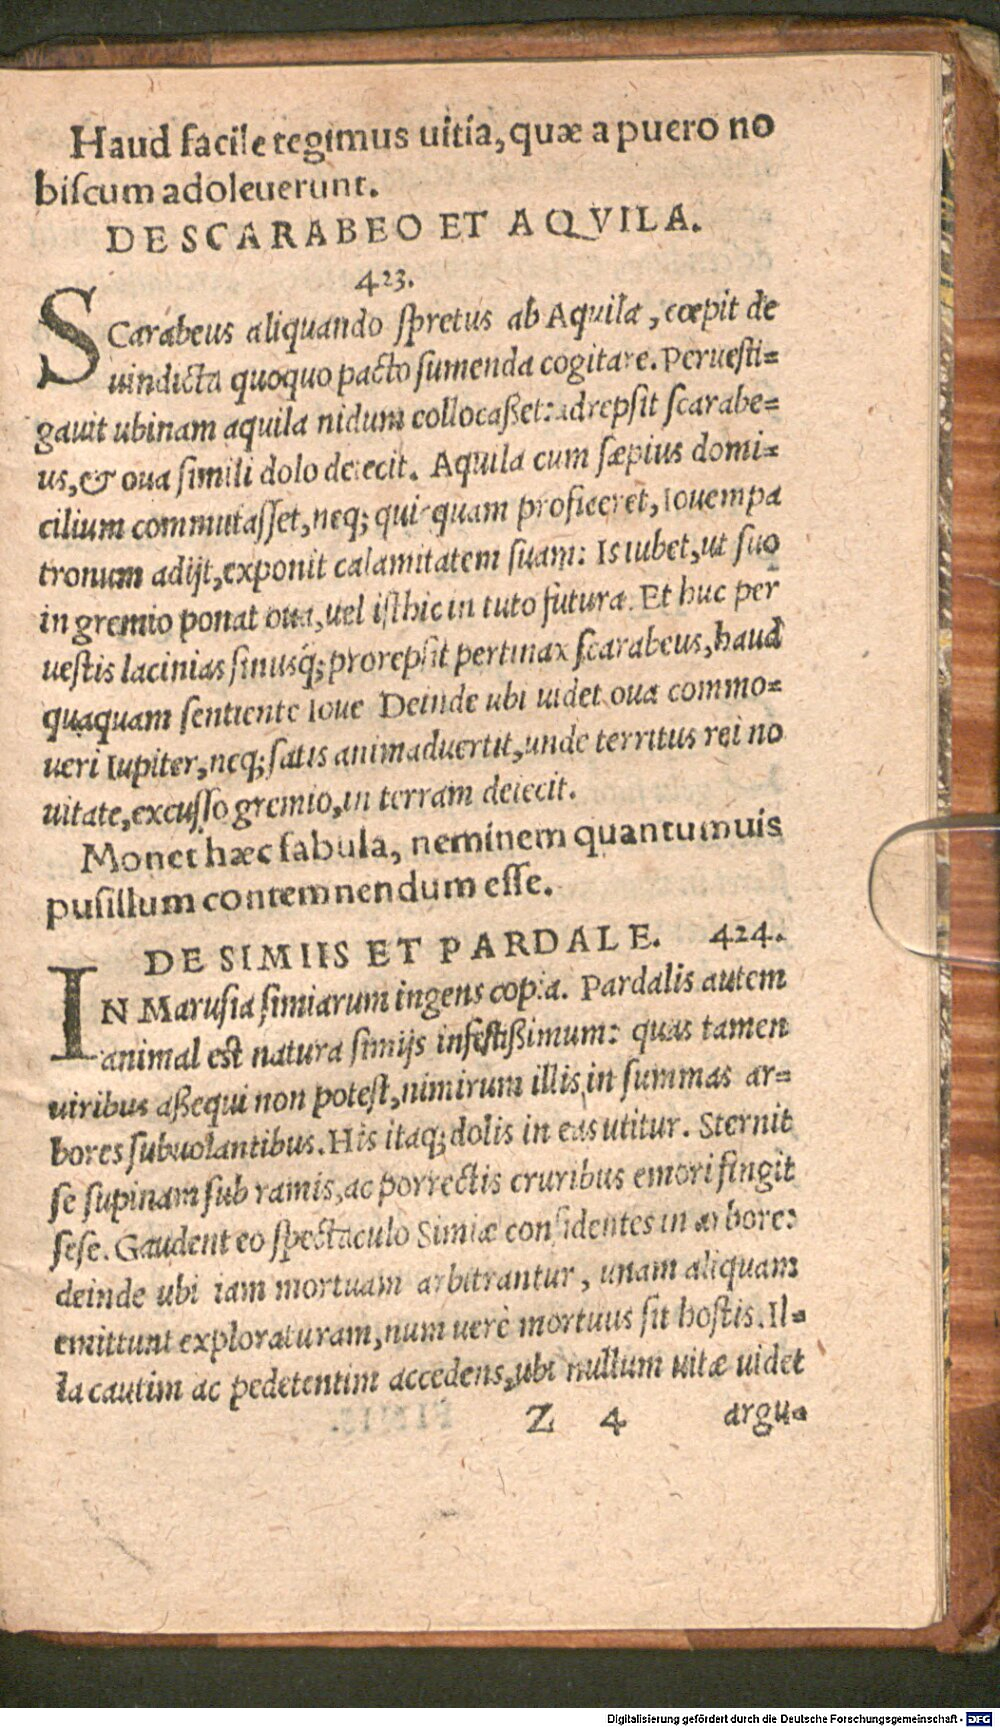 Haud facile tegimus uitia, quæ a puero no
biſcum adoleuerunt.
DE SCARABEO ET AQVILA.
423.
SCarabeus aliquando ſpretus ab Aquila, cœpit de
uindicta quoquo pacto ſumenda cogitare. Perueſti=
gauit ubinam aquila nidum collocaßet: adrepſit ſcarabe=
us, & oua ſimili dolo deiecit. Aquila cum ſæpius domi=
cilium commutaſſet, neq; quicquam proficeret, Iouem pa
tronum adijt, exponit calamitatem ſuam: Is iubet, ut ſuo
in gremio ponat oua, uel iſthic in tuto futura. Et huc per
ueſtis lacinias ſinusq́; prorepſit pertinax ſcarabeus, haud
quaquam ſentiente Ioue Deinde ubi uidet oua commo=
ueri Iupiter, neq; ſatis animaduertit, unde territus rei no
uitate, excuſſo gremio, in terram deiecit.
Monet hæc fabula, neminem quantumuis
puſillum contemnendum eſſe.
DE SIMIIS ET PARDALE. 424.
IN Maruſia ſimiarum ingens copia. Pardalis autem
animal eſt natura ſimijs infeſtißimum: quas tamen
uiribus aßequi non poteſt, nimirum illis in ſummas ar=
bores ſubuolantibus. His itaq; dolis in eas utitur. Sternit
ſe ſupinam ſub ramis, ac porrectis cruribus emori fingit
ſeſe. Gaudent eo ſpectaculo Simiæ conſidentes in arbore:
deinde ubi iam mortuam arbitrantur, unam aliquam
emittunt exploraturam, num uerè mortuus ſit hoſtis. Il=
la cautim ac pedetentim accedens, ubi nullum uitæ uidet
Z 4 argu=
Digitalisierung gefördert durch die Deutsche Forschungsgemeinschaft - DFG